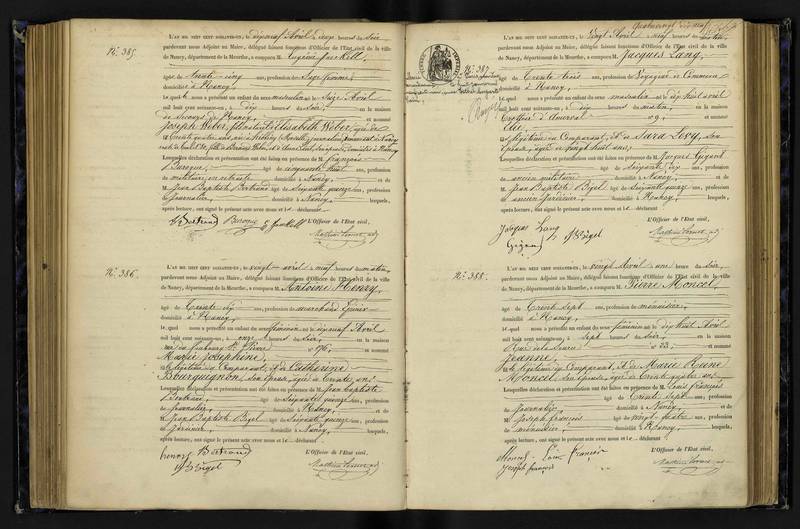 N.º 385.
L'AN MIL HUIT CENT SOIXANTE-UN, le dixneuf Avril à onze heures du soir
pardevant nous Adjoint au Maire, délégué faisant fonctions d'Officier de l'Etat civil de la ville
de Nancy, département de la Meurthe, a comparu M. Eugénie
âgée de Trente cinq ans, profession de Sage femme
domicilié à Nancy
Laquelle nous a présenté un enfant du sexe masculin né le Seize Avril
mil huit cent soixante-un, à dix heures du soir, en la maison
de Secours de Nancy, et nommé
Joseph Weber, fils naturel d'Elisabeth Weber, âgée de
Trente quatre ans,
domiciliée à Nancy
Lesquelles déclaration et présentation ont été faites en présence de M. François
Baroque, âgé de cinquante huit ans, profession
de militaire en retraite domicilié à Nancy, et de
M. Jean Baptiste Bertrand âgé de Soixante quinze ans, profession
de Journalier, domicilié à Nancy, lesquels,
après lecture, ont signé le présent acte avec nous et le déclarant
L'Officier de l'Etat civil,
Bertrand Baroque
N.º 386.
L'AN MIL HUIT CENT SOIXANTE-UN, le vingt avril à neuf heures du matin
pardevant nous Adjoint au Maire, délégué faisant fonctions d'Officier de l'Etat civil de la ville
de Nancy, département de la Meurthe, a comparu M. Antoine Henry,
âgé de Trente six ans, profession de marchand Epicier
domicilié à Nancy
Lequel nous a présenté un enfant du sexe féminin né le dixneuf Avril
mil huit cent soixante-un, à onze heures du soir, en la maison
rue du faubourg St. Pierre n° 176, et nommé
Marie Joséphine,
fille légitime du Comparant, et de Catherine
Bourguignon, son Epouse, âgée de Trente ans
Lesquelles déclaration et présentation ont été faites en présence de M. Jean Baptiste
Bertrand, âgé de Soixante quinze ans, profession
de Journalier, domicilié à Nancy, et de
M. Jean Baptiste Bigel âgé de Soixante quinze ans, profession
de Jardinier, domicilié à Nancy, lesquels,
après lecture, ont signé le présent acte avec nous et le déclarant
L'Officier de l'Etat civil,
henry Bertrand
JB Bigel
N.º 387.
L'AN MIL HUIT CENT SOIXANTE-UN, le Vingt Avril à neuf heures du matin
pardevant nous Adjoint au Maire, délégué faisant fonctions d'Officier de l'Etat civil de la ville
de Nancy, département de la Meurthe, a comparu M. Jacques Lang,
âgé de Trente trois ans, profession de Voyageur de Commerce
domicilié à Nancy,
Lequel nous a présenté un enfant du sexe masculin né le dix huit avril
mil huit cent soixante-un, à dix heures du matin, en la maison
n° 9, et nommé
fils légitime du Comparant, et de Sara Levy, son
Epouse, âgée de vingt huit ans;
Lesquelles déclaration et présentation ont été faites en présence de M. Jacques
âgé de Soixante dix ans, profession
de ancien militaire domicilié à Nancy, et de
M. Jean Baptiste Bigel âgé de Soixante quinze ans, profession
de ancien Jardinier, domicilié à Nancy, lesquels,
après lecture, ont signé le présent acte avec nous et le déclarant
L'Officier de l'Etat civil,
Jacques Lang
JB Bigel
N.º 388.
L'AN MIL HUIT CENT SOIXANTE-UN, le vingt Avril à une heure du soir,
pardevant nous Adjoint au Maire, délégué faisant fonctions d'Officier de l'Etat civil de la ville
de Nancy, département de la Meurthe, a comparu M. Pierre Moncel,
âgé de Trente sept ans, profession de menuisier,
domicilié à Nancy
Lequel nous a présenté un enfant du sexe féminin né le dix huit Avril
mil huit cent soixante-un, à sept heures du soir, en la maison
n° 23, et nommé
Jeanne,
fille légitime du Comparant, et de Marie Reine
Moncel, son Epouse, âgée de Trente quatre ans
Lesquelles déclaration et présentation ont été faites en présence de M. Louis François
âgé de Trente sept ans, profession
de Journalier, domicilié à Nancy, et de
M. Joseph François âgé de Vingt quatre ans, profession
de menuisier, domicilié à Nancy, lesquels,
après lecture, ont signé le présent acte avec nous et le déclarant
L'Officier de l'Etat civil,
Moncel Louis François
Joseph françois